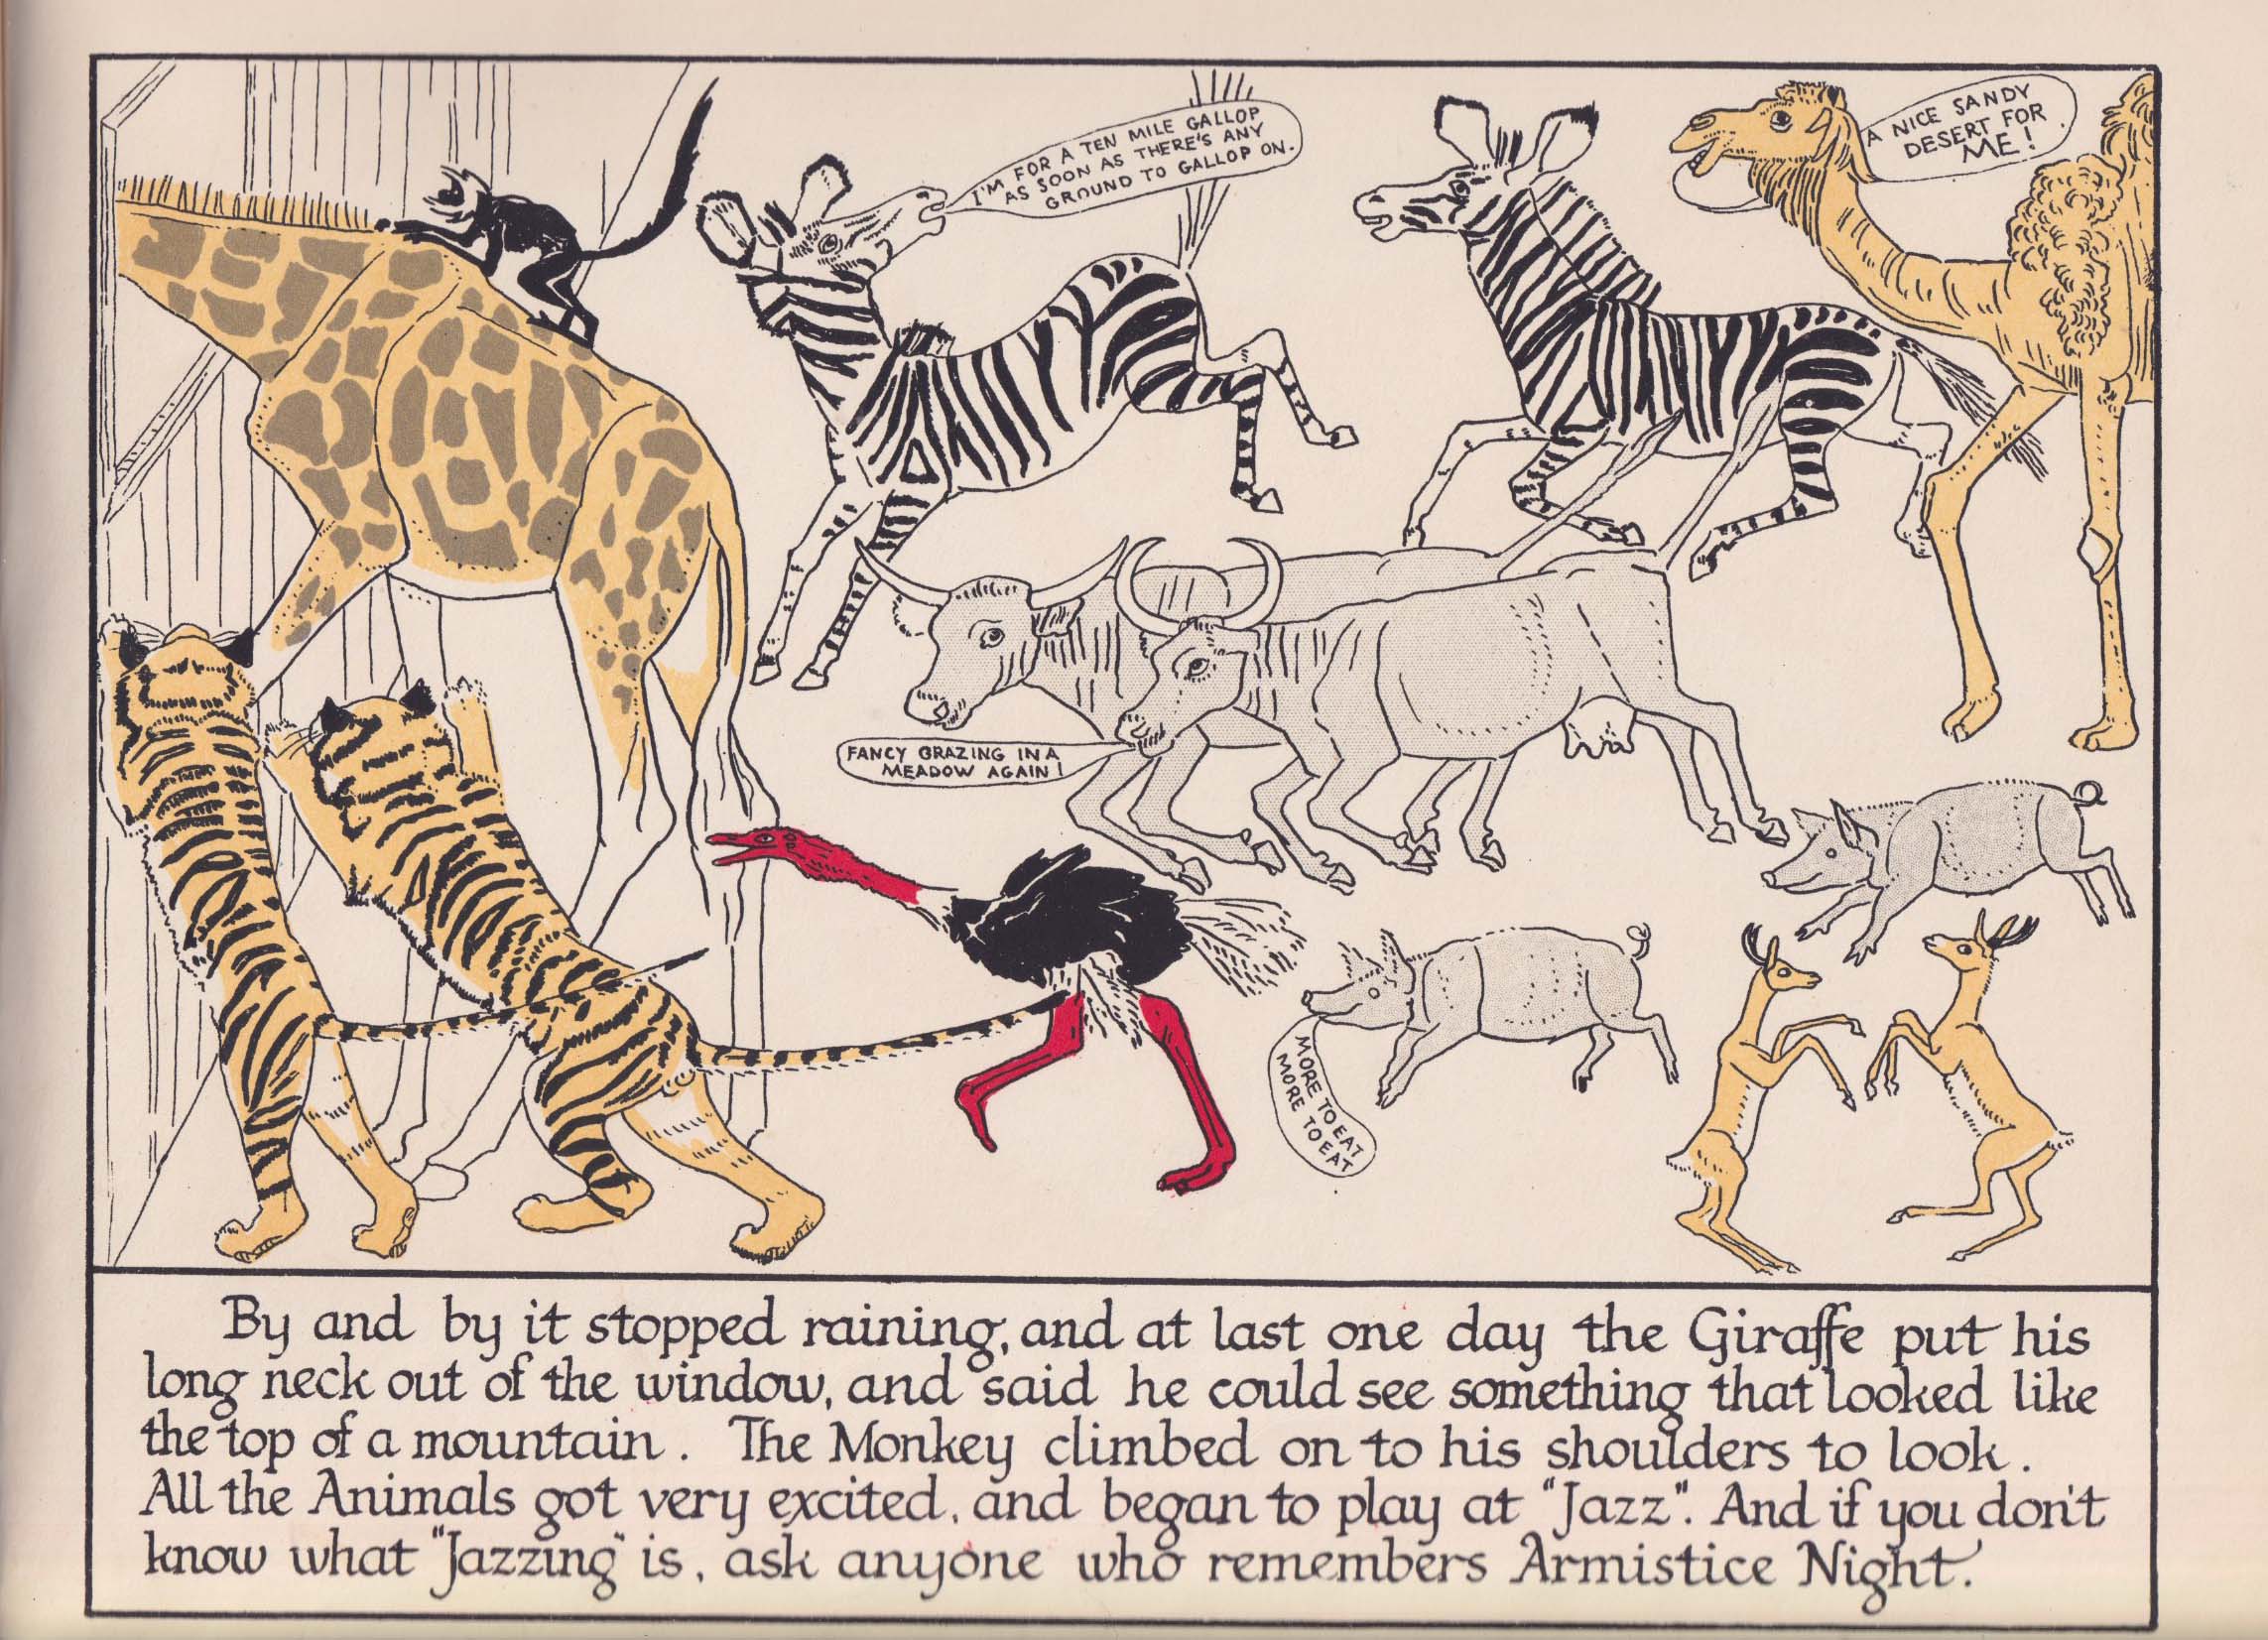 I'M FOR A TEN MILE GALLOP
AS SOON AS THERE'S ANY
GROUND TO GALLOP ON.
A NICE SANDY
DESERT FOR
ME!
FANCY GRAZING IN A
MEADOW AGAIN!
MORE TO EAT
MORE TO EAT
By and by it stopped raining, and at last one day the Giraffe put his
long neck out of the window, and said he could see something that looked like
the top of a mountain. The Monkey climbed on to his shoulders to look.
All the Animals got very excited, and began to play at "Jazz". And if you don't
know what "Jazzing" is, ask anyone who remembers Armistice Night.